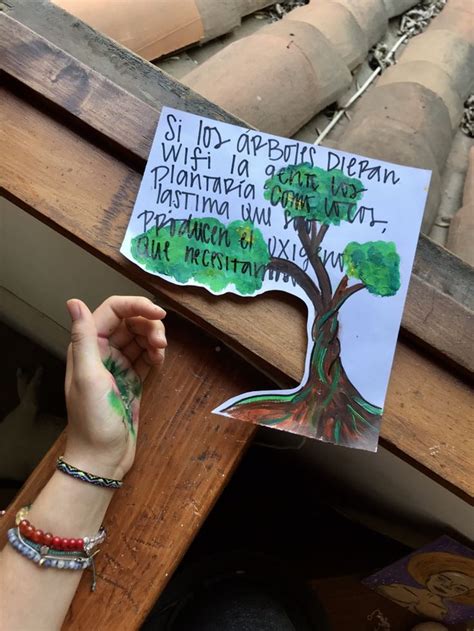 Si los árboles dieran
wifi la gente los
plantaría como locos,
lastima que solo
producen el oxigeno
que necesitamos